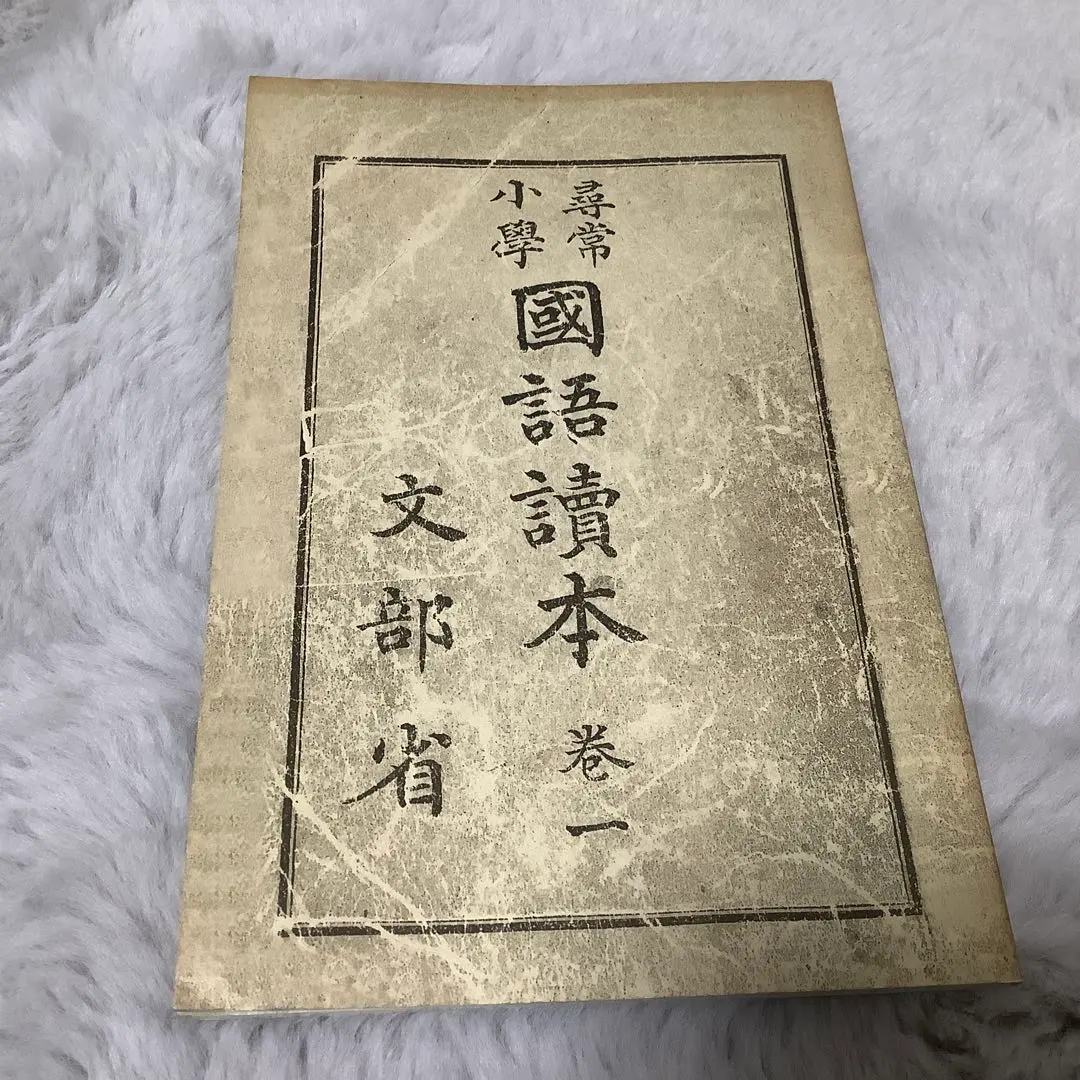 尋常小學國語讀本 卷一
文部省